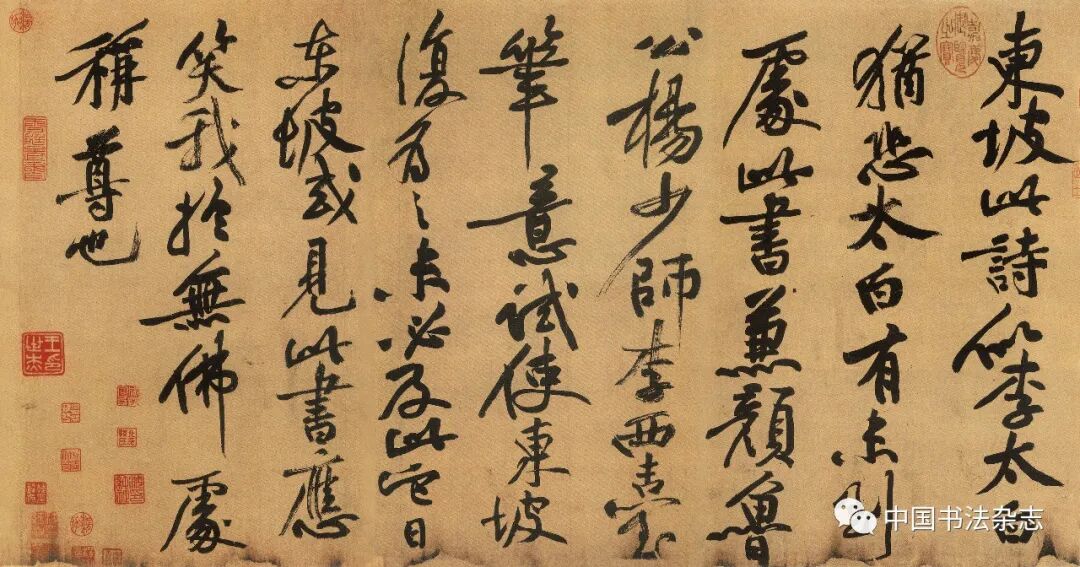 東坡此詩似李太白
猶恐太白有未到
處此書兼顏魯
公楊少師李西臺
筆意試使東坡
復為之未必及此它日
东坡或見此書應
笑我於無佛處
稱尊也
中国书法杂志